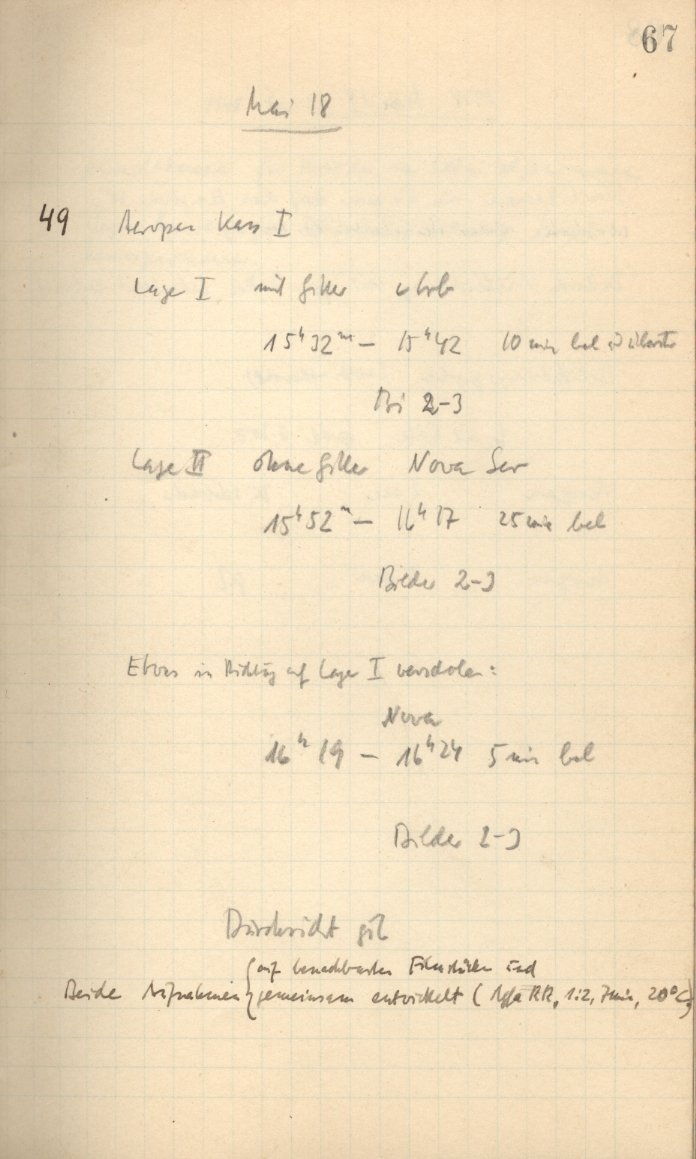 67
Mai 18
49 Aeropan Kass I
Lage I mit Gitter
15h 32m – 15h 42 10 min bel
Bi 2-3
Lage II ohne Gitter Nova Ser
15h 52m – 16h 17 25 min bel
Bilder 2-3
Etwas in Richtung auf Lage I verschoben:
Nova
16h 19 – 16h 24 5 min bel
Bilder 2-3
Durchsicht gut
auf benachbarten Filmstücken und
Beide Aufnahmen gemeinsam entwickelt (Agfa RR, 1:2, 7min, 20°C)